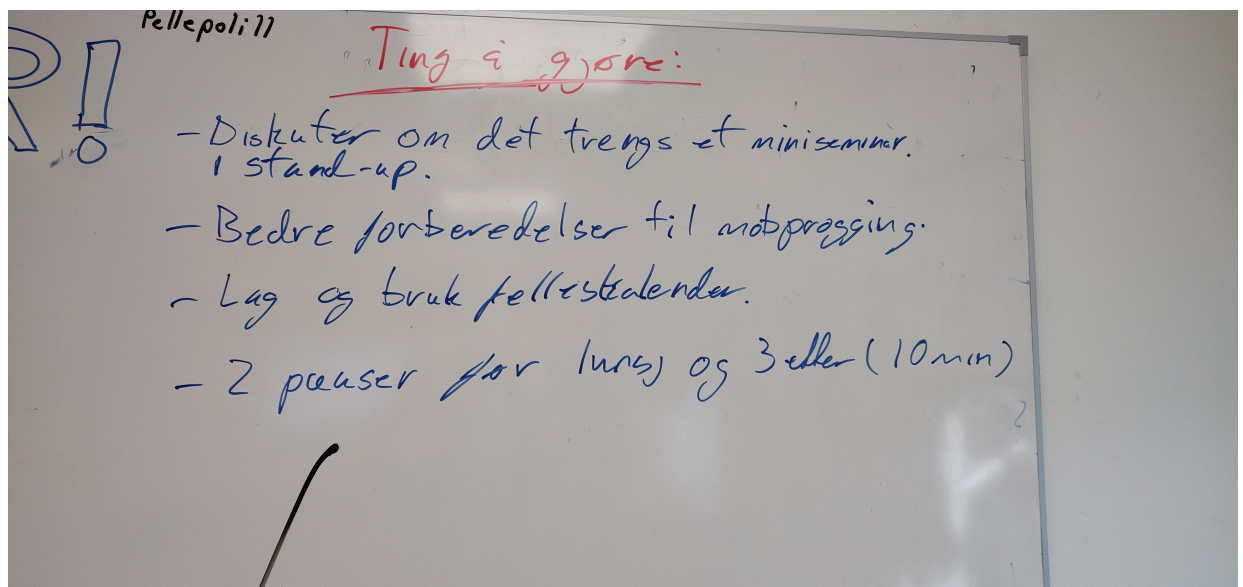 Pellepolill
R!
Ting å gjøre:
- Diskuter om det trengs et miniseminar.
i stand-up.
- Bedre forberedelser til mobprogging.
- Lag og bruk felleskalender.
- 2 pauser før lunsj og 3 etter (10 min)